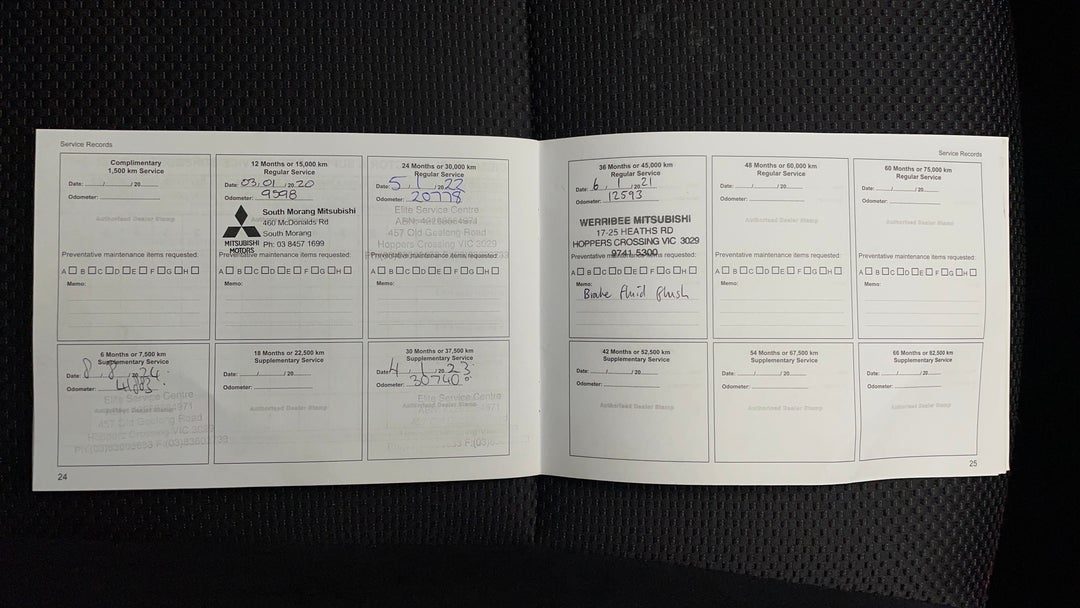 Service Records
Complimentary
1,500 km Service
Date: ___/___/ 20___
Odometer:
Authorised Dealer Stamp
Preventative maintenance items requested:
A B C D E F G H
Memo:
12 Months or 15,000 km
Regular Service
Date: 03/01/2020
Odometer: 9598
MITSUBISHI
MOTORS
South Morang Mitsubishi
460 McDonalds Rd
South Morang
Ph: 03 8457 1699
Preventative maintenance items requested:
A B C D E F G H
Memo:
24 Months or 30,000 km
Regular Service
Date: 5/1/2022
Odometer: 20778
Elite Service Centre
457 Old Geelong Road
Hoppers Crossing VIC 3029
Preventative maintenance items requested:
A B C D E F G H
Memo:
6 Months or 7,500 km
Supplementary Service
Date: 8/8/2024
Odometer:
Elite Service Centre
Authorised Dealer Stamp
457 Old Geelong Road
Hoppers Crossing VIC 3029
18 Months or 22,500 km
Supplementary Service
Date: ___/___/ 20___
Odometer:
Authorised Dealer Stamp
30 Months or 37,500 km
Supplementary Service
Date: 4/1/2023
Odometer: 30740
Elite Service Centre
Authorised Dealer Stamp
24
Service Records
36 Months or 45,000 km
Regular Service
Date: 6/1/2021
Odometer: 12593
WERRIBEE MITSUBISHI
17-25 HEATHS RD
HOPPERS CROSSING VIC 3029
9741 5300
Preventative maintenance items requested:
A B C D E F G H
Memo:
Brake fluid flush
48 Months or 60,000 km
Regular Service
Date: ___/___/ 20___
Odometer:
Authorised Dealer Stamp
Preventative maintenance items requested:
A B C D E F G H
Memo:
60 Months or 75,000 km
Regular Service
Date: ___/___/ 20___
Odometer:
Authorised Dealer Stamp
Preventative maintenance items requested:
A B C D E F G H
Memo:
42 Months or 52,500 km
Supplementary Service
Date: ___/___/ 20___
Odometer:
Authorised Dealer Stamp
54 Months or 67,500 km
Supplementary Service
Date: ___/___/ 20___
Odometer:
Authorised Dealer Stamp
66 Months or 82,500 km
Supplementary Service
Date: ___/___/ 20___
Odometer:
Authorised Dealer Stamp
25